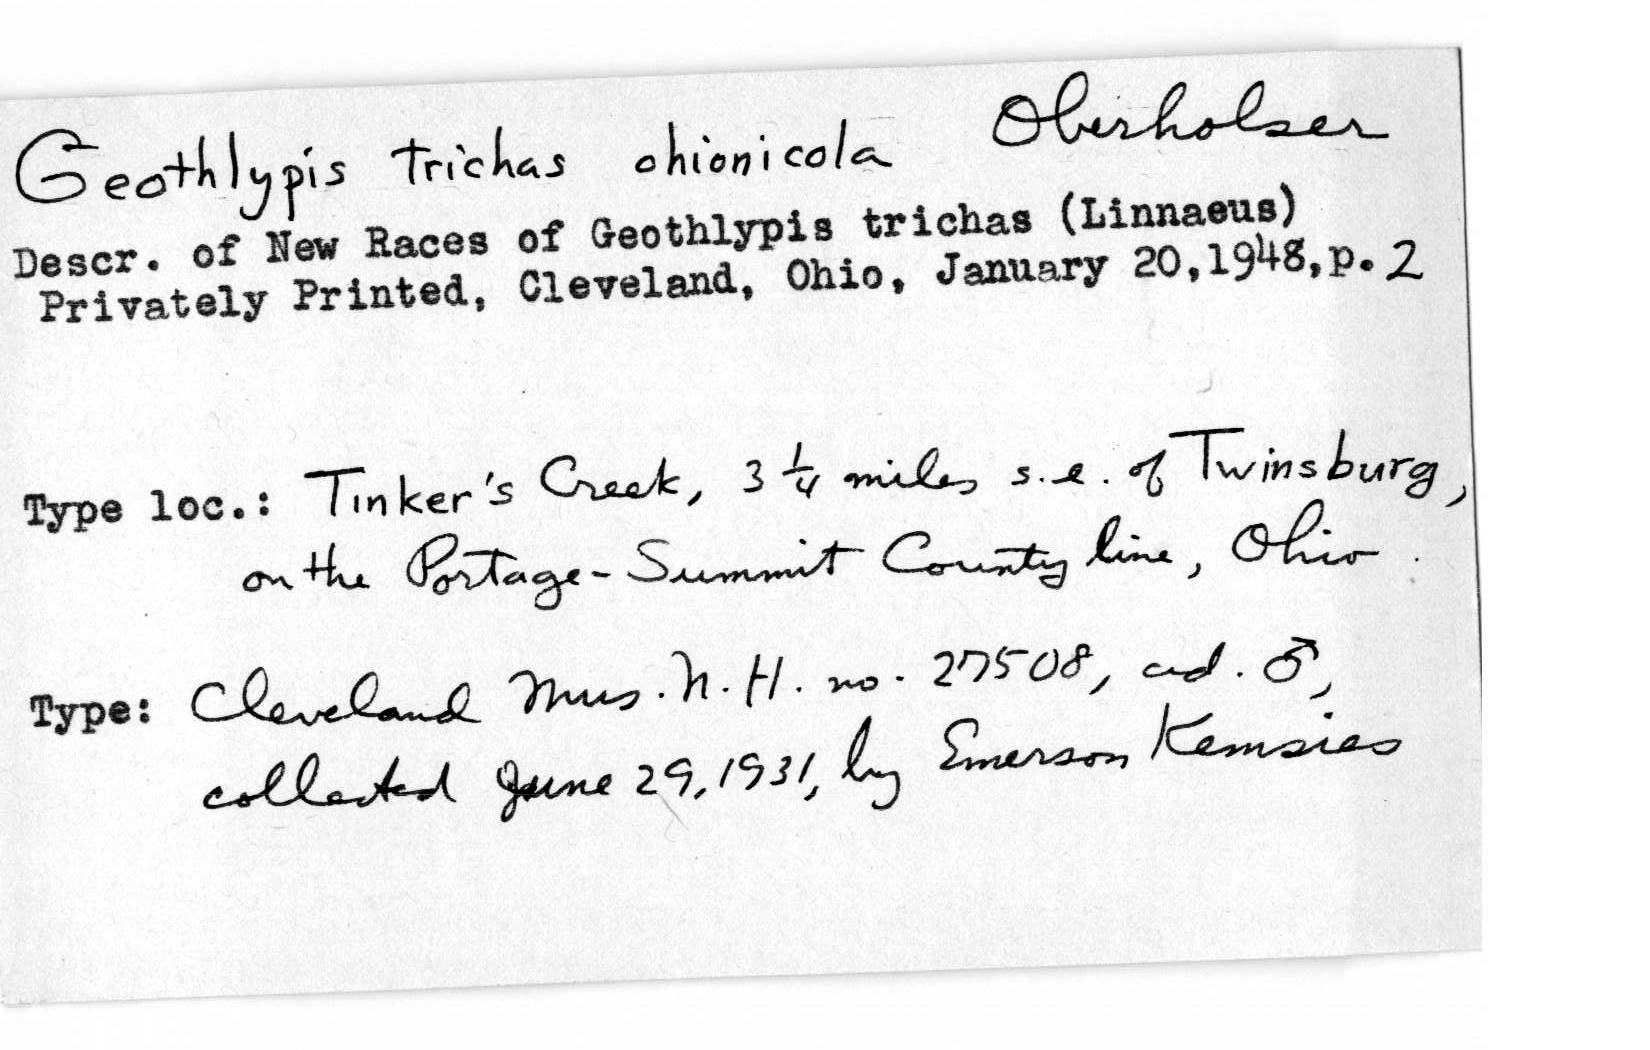 Geothlypis trichas ohionicola Oberholser
Descr. of New Races of Geothlypis trichas (Linnaeus)
Privately Printed, Cleveland, Ohio, January 20,1948,p. 2
Type loc.: Tinker's Creek, 3 1/4 miles s.e. of Twinsburg,
on the Portage-Summit County line, Ohio.
Type: Cleveland Mus. N. H. no. 27508, ad. ♂,
collected June 29, 1931, by Emerson Kemsies